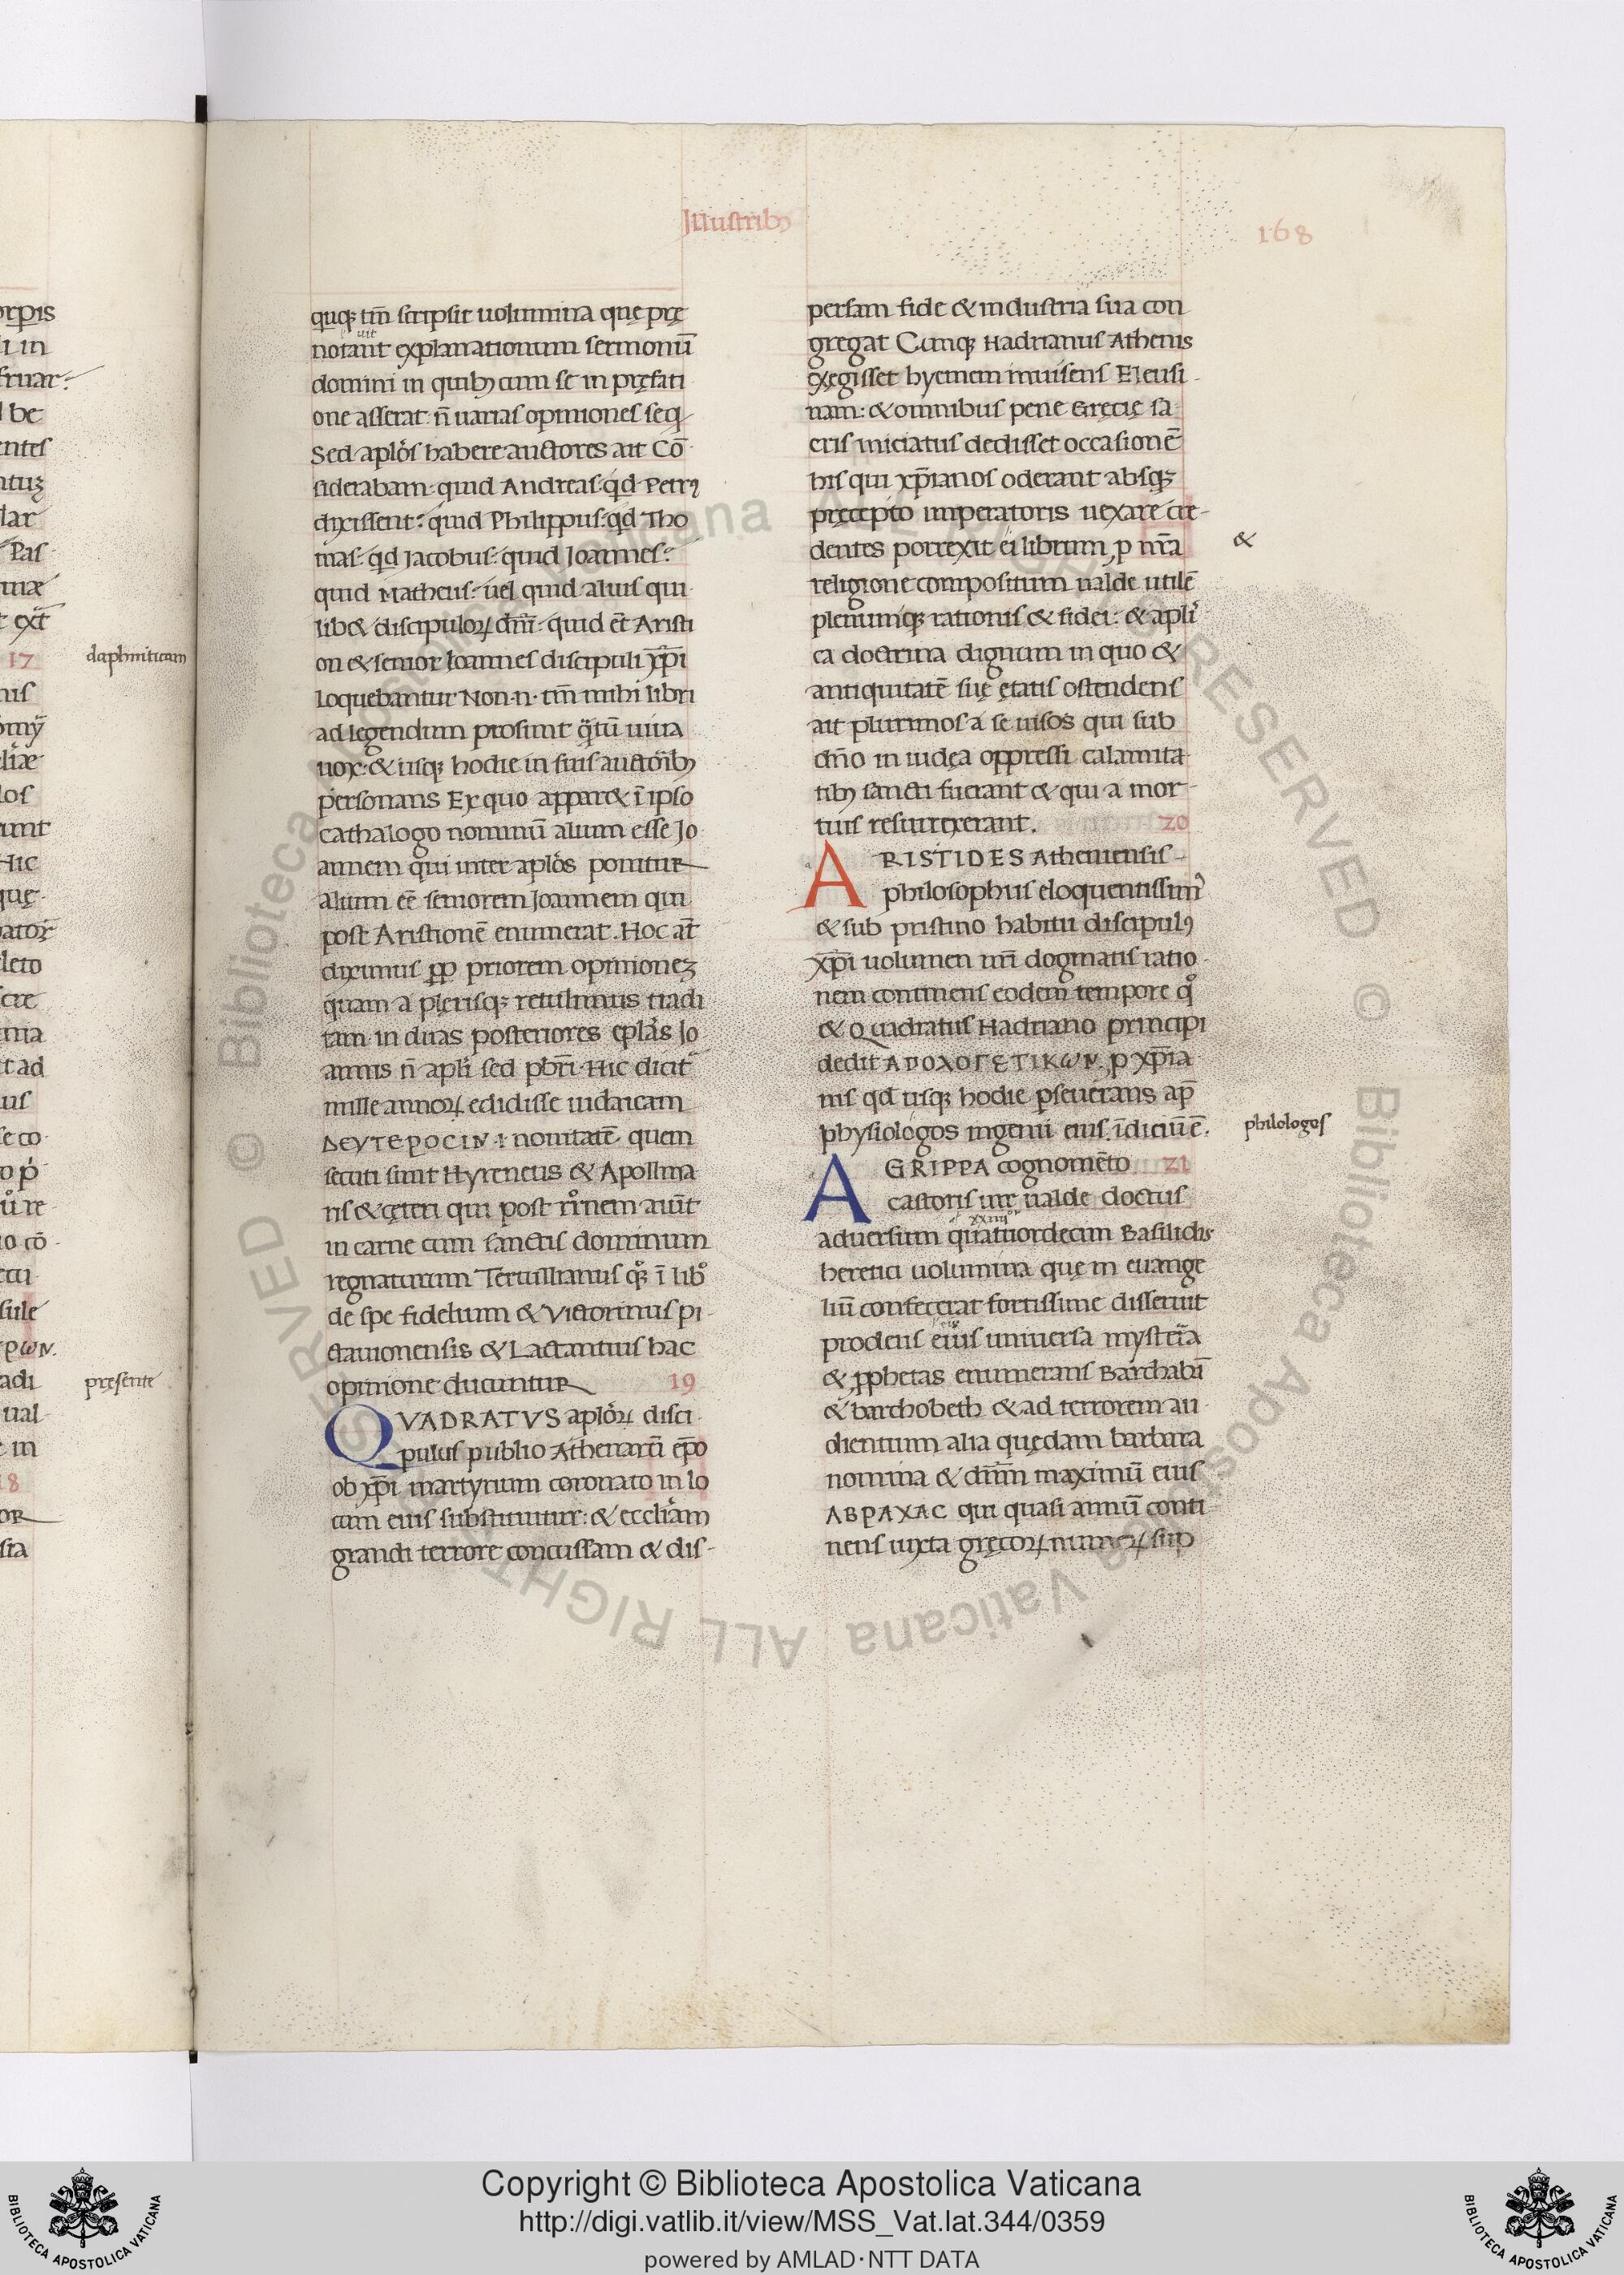 Illustribꝯ
168
quqꝫ tm̄ scripsit uolumina quę pre
notant explanationum sermonū
uit
domini in quibꝫ cum se in pręfati
one asserat n̄ uarias opiniones seq
Sed aplōs habere auctores ait Cō
siderabam quid Andreas qd Petrꝰ
dixissent: quid Philippus: qd Tho
mas: qd Jacobus: quid Joannes:
quid Matheus: uel quid alius qui
lib& discipuloꝝ dnī: quid et Aristi
on & senior Joannes discipuli xp̄i
loquebantur Non n. tm̄ mihi libri
ad legendum prosunt qtū uiua
uox: & usqꝫ hodie in suis auctoribꝫ
personans Ex quo appar& ī ipso
cathalogo nominū alium esse Jo
annem qui inter aplōs ponitur
alium eē seniorem Joannem qui
post Aristionē enumerat. Hoc at̄
diximus ꝓp priorem opinionez
quam a plerisqꝫ retulimus tradi
tam in duas posteriores eplās Jo
annis n̄ aplī sed pbrī. Hic dicit̄
mille annoꝝ edidisse iudaicam
ΔΕΥΤΕΡΟCΙΝ: nouitatē quem
secuti sunt Hyreneus & Apollina
ris & cęteri qui post rōnem aiūt
in carne cum sanctis dominum
regnaturum Tertullianus qꝫ ī libo
de spe fidelium & Victorinus pi
ctauionensis & Lactantius hac
opinione ducuntur
19
QVADRATVS aplōꝝ disci
pulus publio Athenarū ep̄o
ob xp̄i martyrium coronato in lo
cum eius substituitur: & eccliām
grandi terrore concussam & dis-
persam fide & industria sua con
gregat Cunqꝫ Hadrianus Athenis
exegisset hyemem inuisens Eleusi
nam: & omnibus pene Gręcię sa
cris iniciatus dedisset occasionē
his qui xp̄ianos oderant absqꝫ
pręcepto imperatoris uexare cre-
dentes porrexit ei librum ꝓ nr̄a
&
religione compositum ualde utilē
plenumqꝫ rationis & fidei: & apli
ca doctrina dignum in quo &
antiquitatē suę ętatis ostendens
ait plurimos a se uisos qui sub
dn̄o in iudęa oppressi calamita
tibꝫ sancti fuerant & qui a mor-
tuis resurrexerant.
20
ARISTIDES Atheniensis
philosophus eloquentissimꝰ
& sub pristino habitu discipulꝰ
xp̄i uolumen nr̄i dogmatis ratio
nem continens eodem tempore qo
& Quadratus Hadriano principi
dedit ΑΠΟΛΟΓΕΤΙΚωΝ. ꝓ xp̄ia
nis qd usqꝫ hodie ꝑseuerans ap̄
physiologos ingenii eius īdiciū ē.
philologos
21
AGRIPPA cognomēto
castoris uir ualde doctus
xxiiii
aduersum quatuordecim Basilidis
heretici uolumina quę in euange
liū confecerat fortissime disseruit
prodens eius uniuersa mysteria
& ꝓphetas enumerans Barchabā
& barchobeth & ad terrorem au
dientium alia quędam barbara
nomina & dnm maximū eius
ΑΒΡΑΧΑC qui quasi annū conti
nens iuxta gręcoꝝ numeꝝ sup
daphniticam
17
pręsente
18
Copyright © Biblioteca Apostolica Vaticana
http://digi.vatlib.it/view/MSS_Vat.lat.344/0359
powered by AMLAD·NTT DATA
BIBLIOTECA APOSTOLICA VATICANA
BIBLIOTECA APOSTOLICA VATICANA